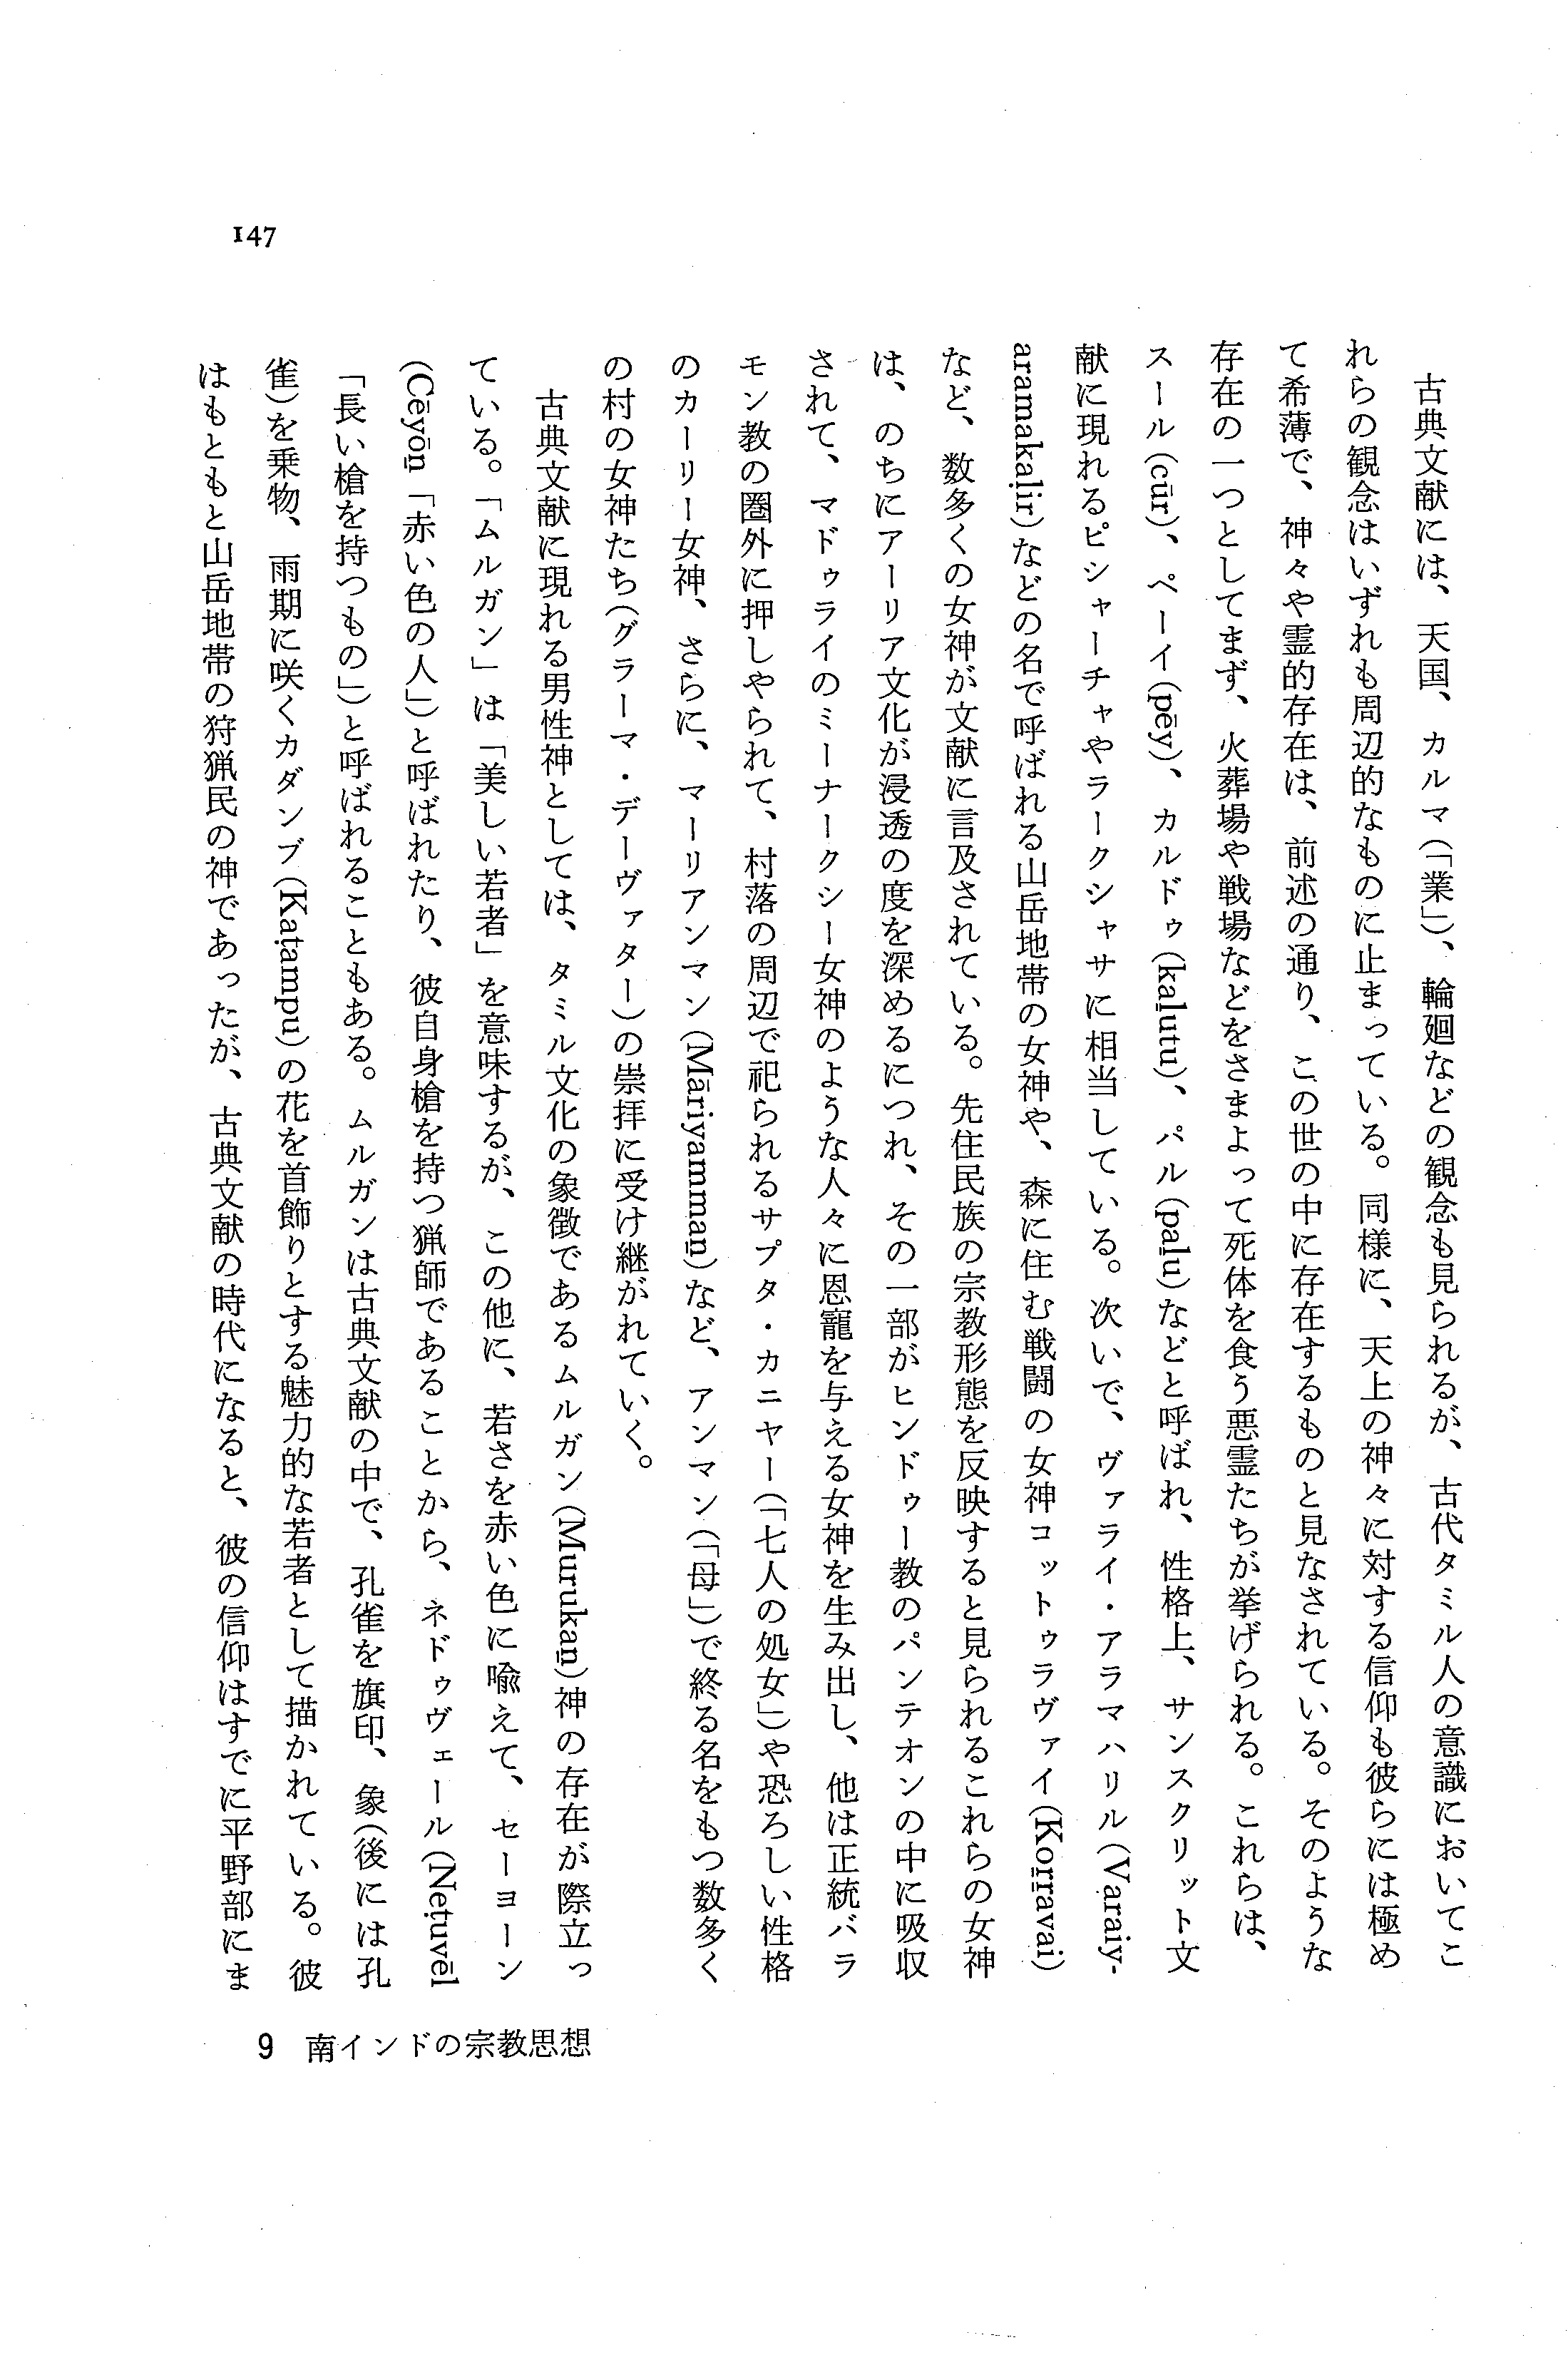 147
古典文献には、天国、カルマ(「業」)、輪廻などの観念も見られるが、古代タミル人の意識においてこ
れらの観念はいずれも周辺的なものに止まっている。同様に、天上の神々に対する信仰も彼らには極め
て希薄で、神々や霊的存在は、前述の通り、この世の中に存在するものと見なされている。そのような
存在の一つとしてまず、火葬場や戦場などをさまよって死体を食う悪霊たちが挙げられる。これらは、
スール(cūr)、ペーイ(pēy)、カルドゥ(kaḻutu)、パル(paḻu)などと呼ばれ、性格上、サンスクリット文
献に現れるピシャーチャやラークシャサに相当している。次いで、ヴァライ・アラマハリル(Varaiy-
aramakaḷir)などの名で呼ばれる山岳地帯の女神や、森に住む戦闘の女神コットゥラヴァイ(Koṟṟavai)
など、数多くの女神が文献に言及されている。先住民族の宗教形態を反映すると見られるこれらの女神
は、のちにアーリア文化が浸透の度を深めるにつれ、その一部がヒンドゥー教のパンテオンの中に吸収
されて、マドゥライのミーナークシー女神のような人々に恩寵を与える女神を生み出し、他は正統バラ
モン教の圏外に押しやられて、村落の周辺で祀られるサプタ・カニヤー(「七人の処女」)や恐ろしい性格
のカーリー女神、さらに、マーリアンマン(Māriyammaṉ)など、アンマン(「母」)で終る名をもつ数多く
の村の女神たち(グラーマ・デーヴァター)の崇拝に受け継がれていく。
古典文献に現れる男性神としては、タミル文化の象徴であるムルガン(Murukaṉ)神の存在が際立っ
ている。「ムルガン」は「美しい若者」を意味するが、この他に、若さを赤い色に喩えて、セーヨーン
(Cēyōṉ「赤い色の人」)と呼ばれたり、彼自身槍を持つ猟師であることから、ネドゥヴェール(Neṭuvēl
「長い槍を持つもの」)と呼ばれることもある。ムルガンは古典文献の中で、孔雀を旗印、象(後には孔
雀)を乗物、雨期に咲くカダンブ(Kaṭampu)の花を首飾りとする魅力的な若者として描かれている。彼
はもともと山岳地帯の狩猟民の神であったが、古典文献の時代になると、彼の信仰はすでに平野部にま
9 南インドの宗教思想